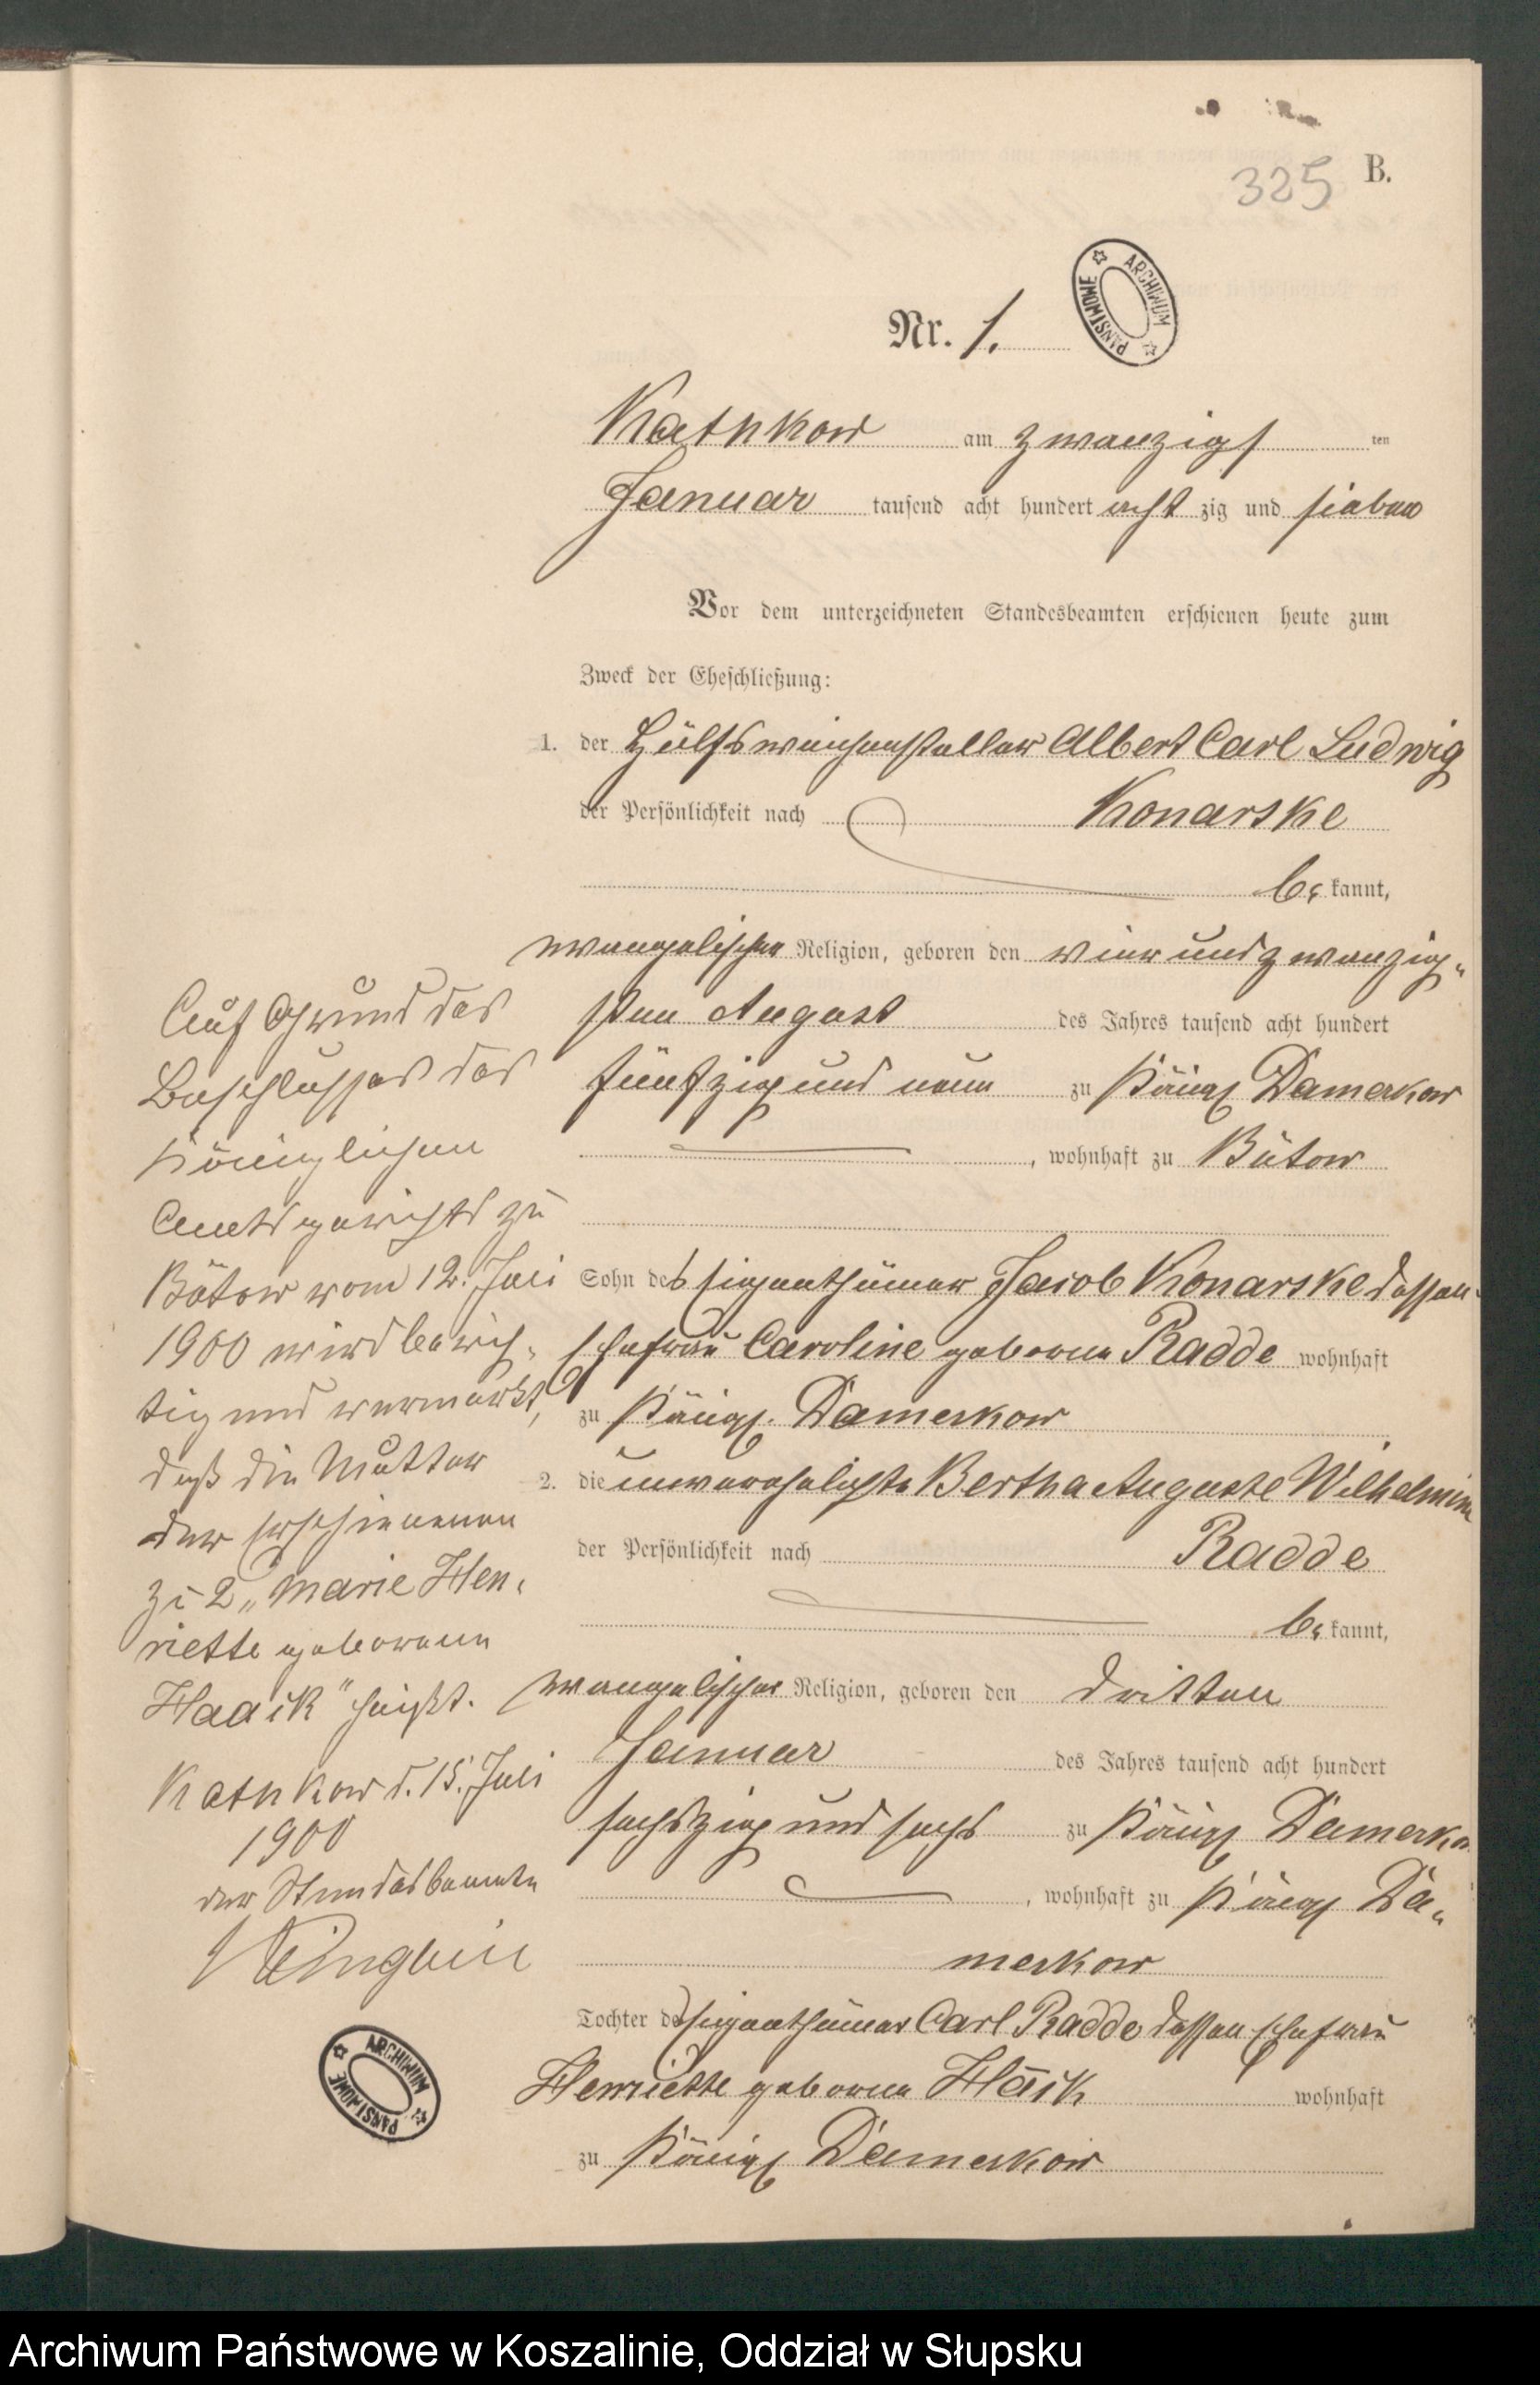 325 B.
ARCHIWUM PAŃSTWOWE
Nr. 1.
Kathkow am zwanzigsten
Januar tausend acht hundert achtzig und sieben
Vor dem unterzeichneten Standesbeamten erschienen heute zum
Zweck der Eheschließung:
1. der Hülfsweichensteller Albert Carl Ludwig
der Persönlichkeit nach Konarske
bekannt,
evangelischer Religion, geboren den vier und zwanzig-
sten August des Jahres tausend acht hundert
fünfzig und neun zu Königl Damerkow
, wohnhaft zu Bütow
Sohn des Eigenthümer Jacob Konarske dessen
Ehefrau Caroline geborne Radde wohnhaft
zu Königl. Damerkow
2. die unverehelichte Bertha Auguste Wilhelmine
der Persönlichkeit nach Radde
bekannt,
evangelischer Religion, geboren den dritten
Januar des Jahres tausend acht hundert
sechszig und sechs zu Königl Damerko
, wohnhaft zu Königl Da-
merkow
Tochter des Eigenthümer Carl Radde dessen Ehefrau
Henriette geborne Hack wohnhaft
zu Königl Damerkow
Auf Grund des
Beschlusses des
Königlichen
Amtsgerichts zu
Bütow vom 12. Juli
1900 wird berich-
tig und vermerkt,
daß die Mutter
der Erschienenen
zu 2 „Marie Hen-
riette geborenen
Haack" heißt.
Kathkow d. 15. Juli
1900
der Standesbeamte
ARCHIWUM PAŃSTWOWE
Archiwum Państwowe w Koszalinie, Oddział w Słupsku